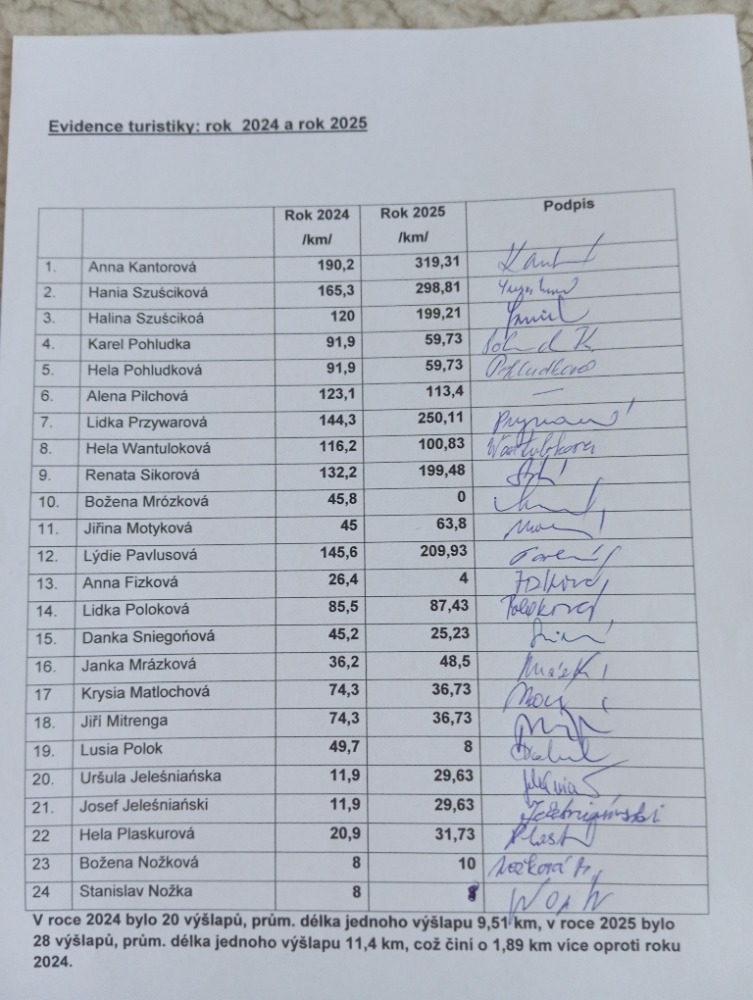 Evidence turistiky: rok 2024 a rok 2025
Rok 2024 /km/ Rok 2025 /km/ Podpis
1. Anna Kantorová 190,2 319,31
2. Hania Szuściková 165,3 298,81
3. Halina Szuścikoá 120 199,21
4. Karel Pohludka 91,9 59,73
5. Hela Pohludková 91,9 59,73 Pohludková
6. Alena Pilchová 123,1 113,4 —
7. Lidka Przywarová 144,3 250,11
8. Hela Wantuloková 116,2 100,83 Wantulokova
9. Renata Sikorová 132,2 199,48
10. Božena Mrózková 45,8 0
11. Jiřina Motyková 45 63,8
12. Lýdie Pavlusová 145,6 209,93
13. Anna Fizková 26,4 4
14. Lidka Poloková 85,5 87,43 Poloková
15. Danka Sniegoňová 45,2 25,23
16. Janka Mrázková 36,2 48,5
17 Krysia Matlochová 74,3 36,73
18. Jiří Mitrenga 74,3 36,73
19. Lusia Polok 49,7 8
20. Uršula Jeleśniańska 11,9 29,63
21. Josef Jeleśniański 11,9 29,63
22 Hela Plaskurová 20,9 31,73
23 Božena Nožková 8 10 Nožková B.
24 Stanislav Nožka 8 8
V roce 2024 bylo 20 výšlapů, prům. délka jednoho výšlapu 9,51 km, v roce 2025 bylo
28 výšlapů, prům. délka jednoho výšlapu 11,4 km, což činí o 1,89 km více oproti roku
2024.